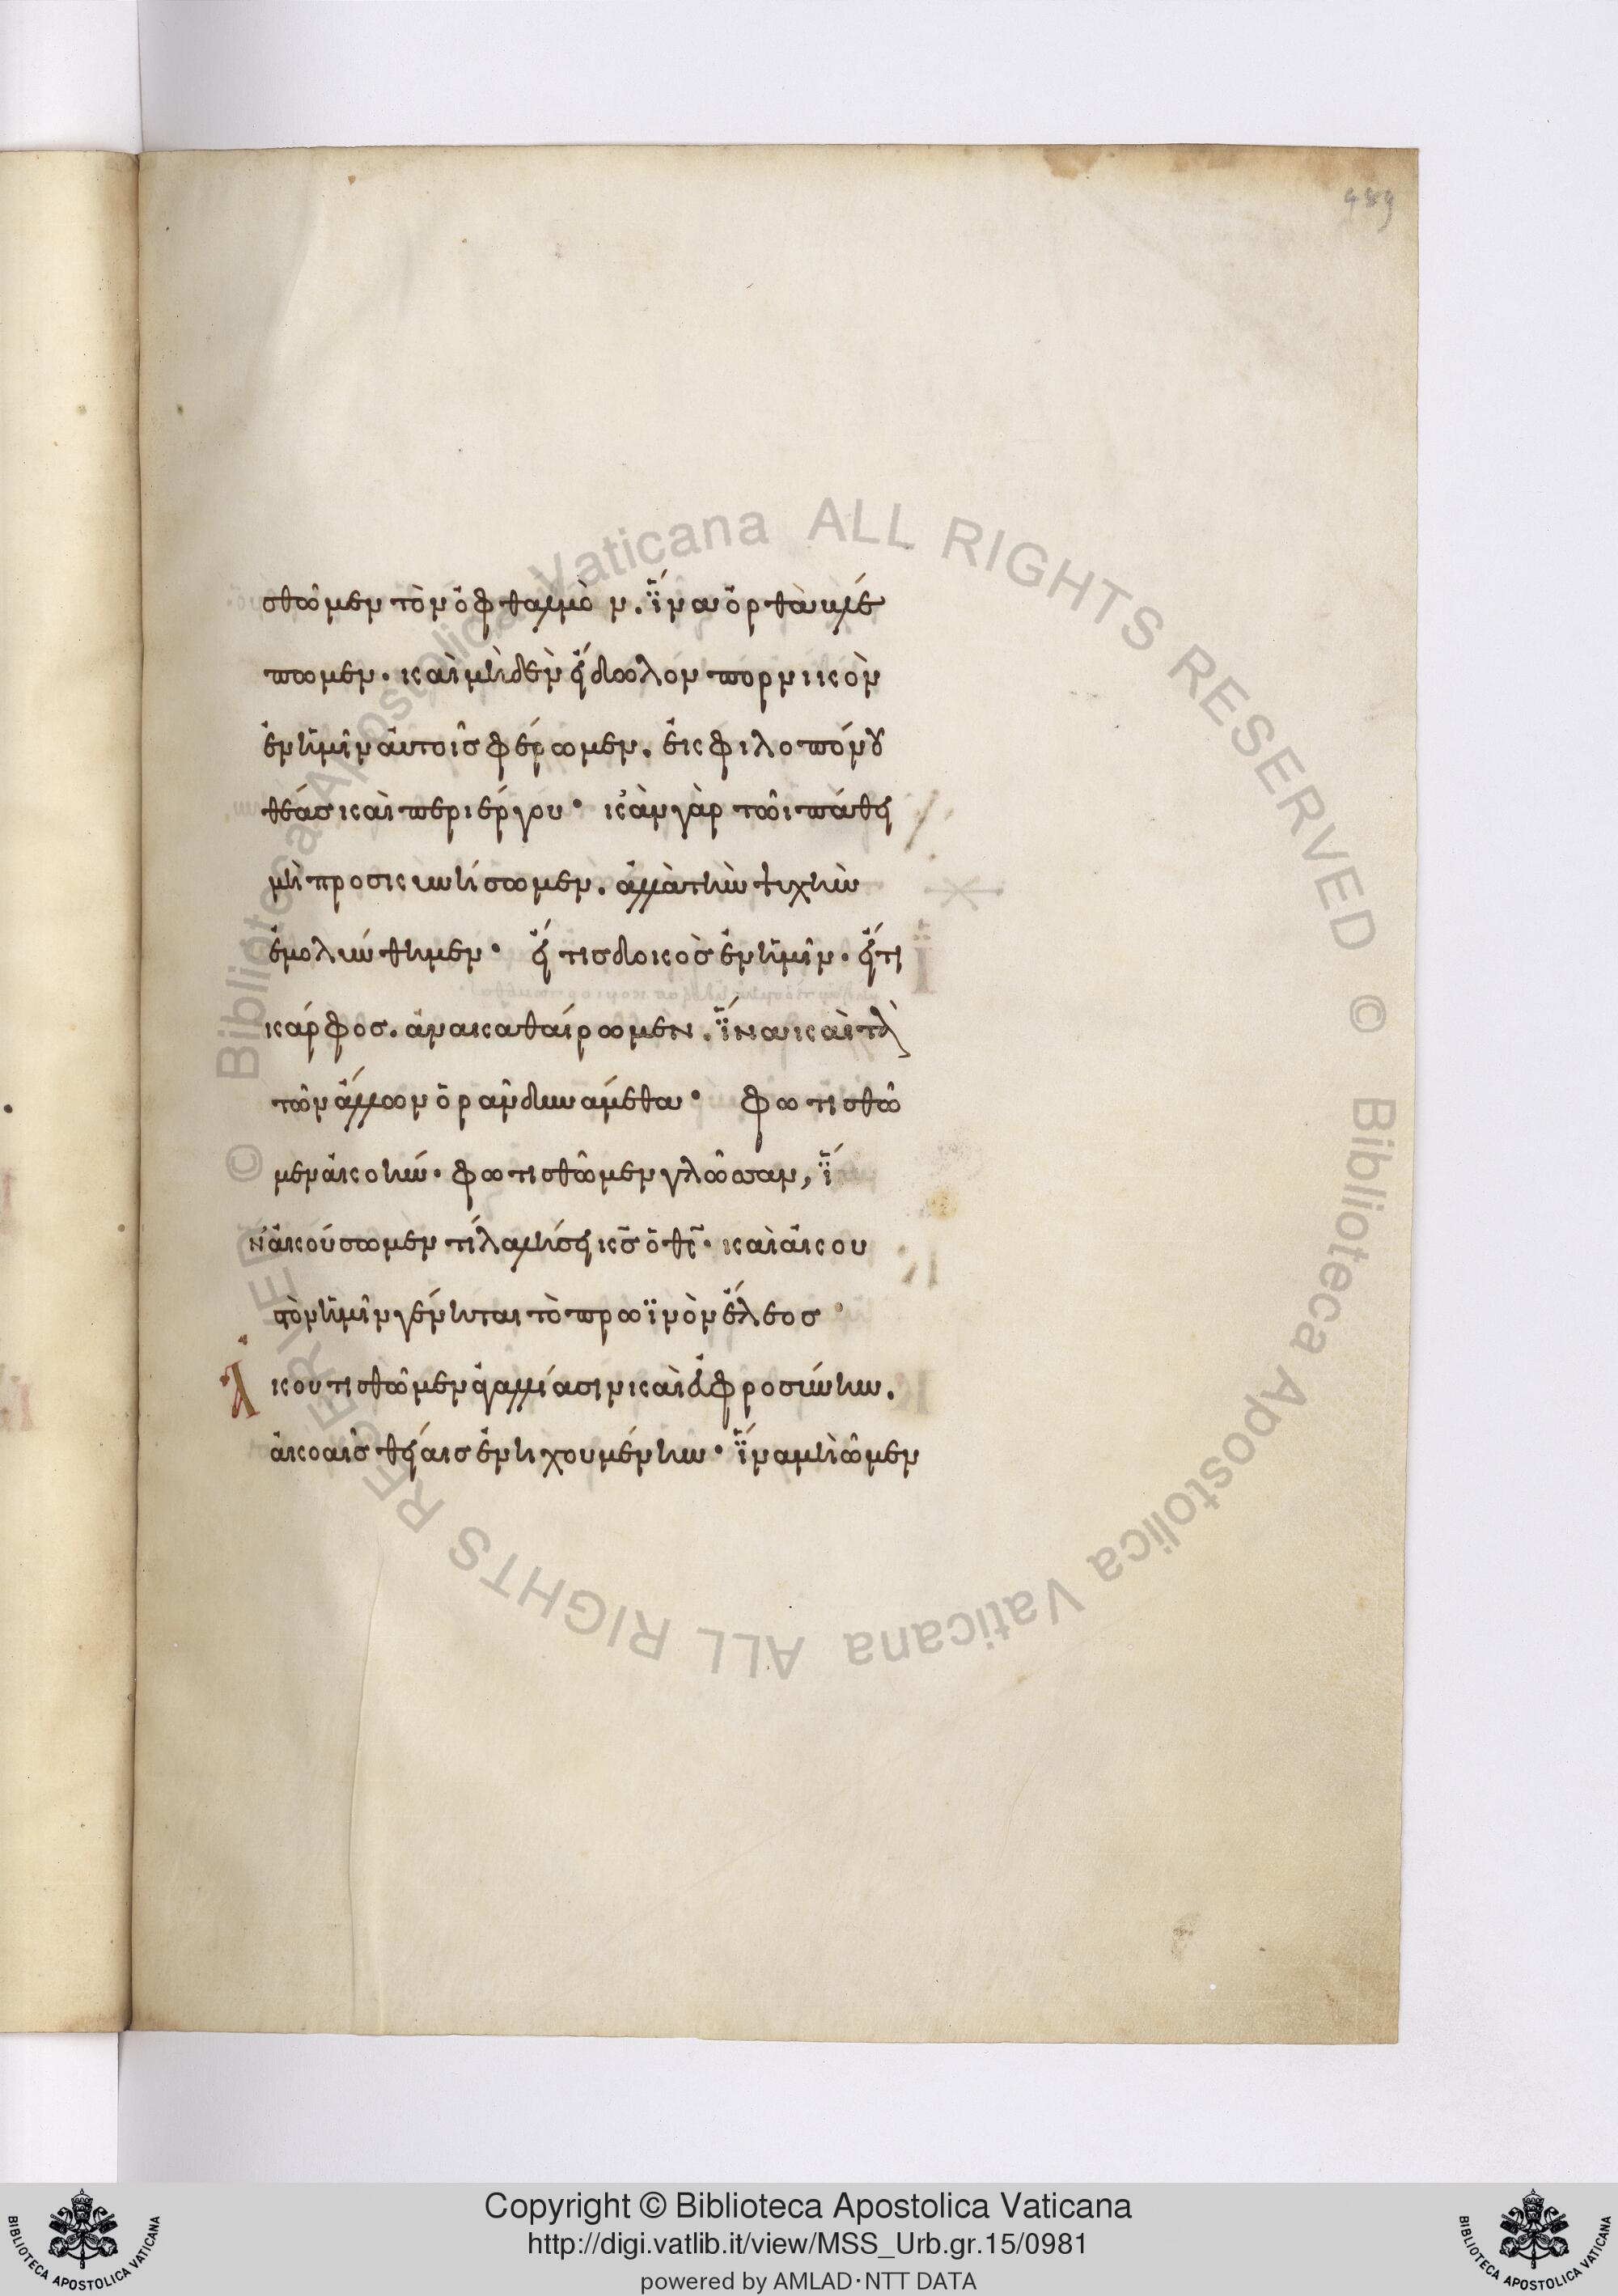 489
σθῶμεν τὸν ὀφθαλμὸν. ἵνα ὀρθὰ βλέ
πωμεν. καὶ μηδὲν εἴδωλον πορνικὸν
ἐν ἡμῖν αὐτοῖς φέρωμεν. ἐις φιλοπόνου
θέας καὶ περιέργου· κἂν γὰρ τῶι πάθει
μὴ προσκυνήσωμεν. ἀλλὰ τὴν ψυχὴν
ἐμολύνθημεν· εἴ τις δοκὸς ἐν ἡμῖν. εἴ τι
κάρφος. ἀνακαθαίρωμεν. ἵνα καὶ τὰ
τῶν ἄλλων ὁρᾶν δυνάμεθα· φωτισθῶ
μεν ἀκοήν. φωτισθῶμεν γλῶσσαν, ἵ
ν' ἀκούσωμεν τί λαλήσει κς ὁ θς. καὶ ἀκου
τὸν ἡμῖν γένηται τὸ πρωϊνὸν ἔλεος·
Ἀκουτισθῶμεν ἀγαλλίασιν καὶ ἐυφροσύνην.
ἀκοαῖς θείαις ἐνηχουμένην· ἵνα μὴ ὦμεν
Copyright © Biblioteca Apostolica Vaticana
http://digi.vatlib.it/view/MSS_Urb.gr.15/0981
powered by AMLAD·NTT DATA
BIBLIOTECA APOSTOLICA VATICANA
BIBLIOTECA APOSTOLICA VATICANA
© Biblioteca Apostolica Vaticana ALL RIGHTS RESERVED © Biblioteca Apostolica Vaticana ALL RIGHTS RESERVED